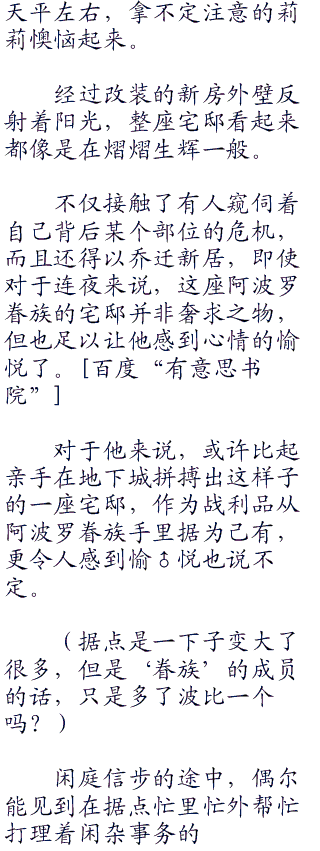 天平左右，拿不定注意的莉
莉懊恼起来。
经过改装的新房外壁反
射着阳光，整座宅邸看起来
都像是在熠熠生辉一般。
不仅接触了有人窥伺着
自己背后某个部位的危机，
而且还得以乔迁新居，即使
对于连夜来说，这座阿波罗
眷族的宅邸并非奢求之物，
但也足以让他感到心情的愉
悦了。[百度“有意思书
院”]
对于他来说，或许比起
亲手在地下城拼搏出这样子
的一座宅邸，作为战利品从
阿波罗眷族手里据为己有，
更令人感到愉♂悦也说不
定。
（据点是一下子变大了
很多，但是‘眷族’的成员
的话，只是多了波比一个
吗？）
闲庭信步的途中，偶尔
能见到在据点忙里忙外帮忙
打理着闲杂事务的